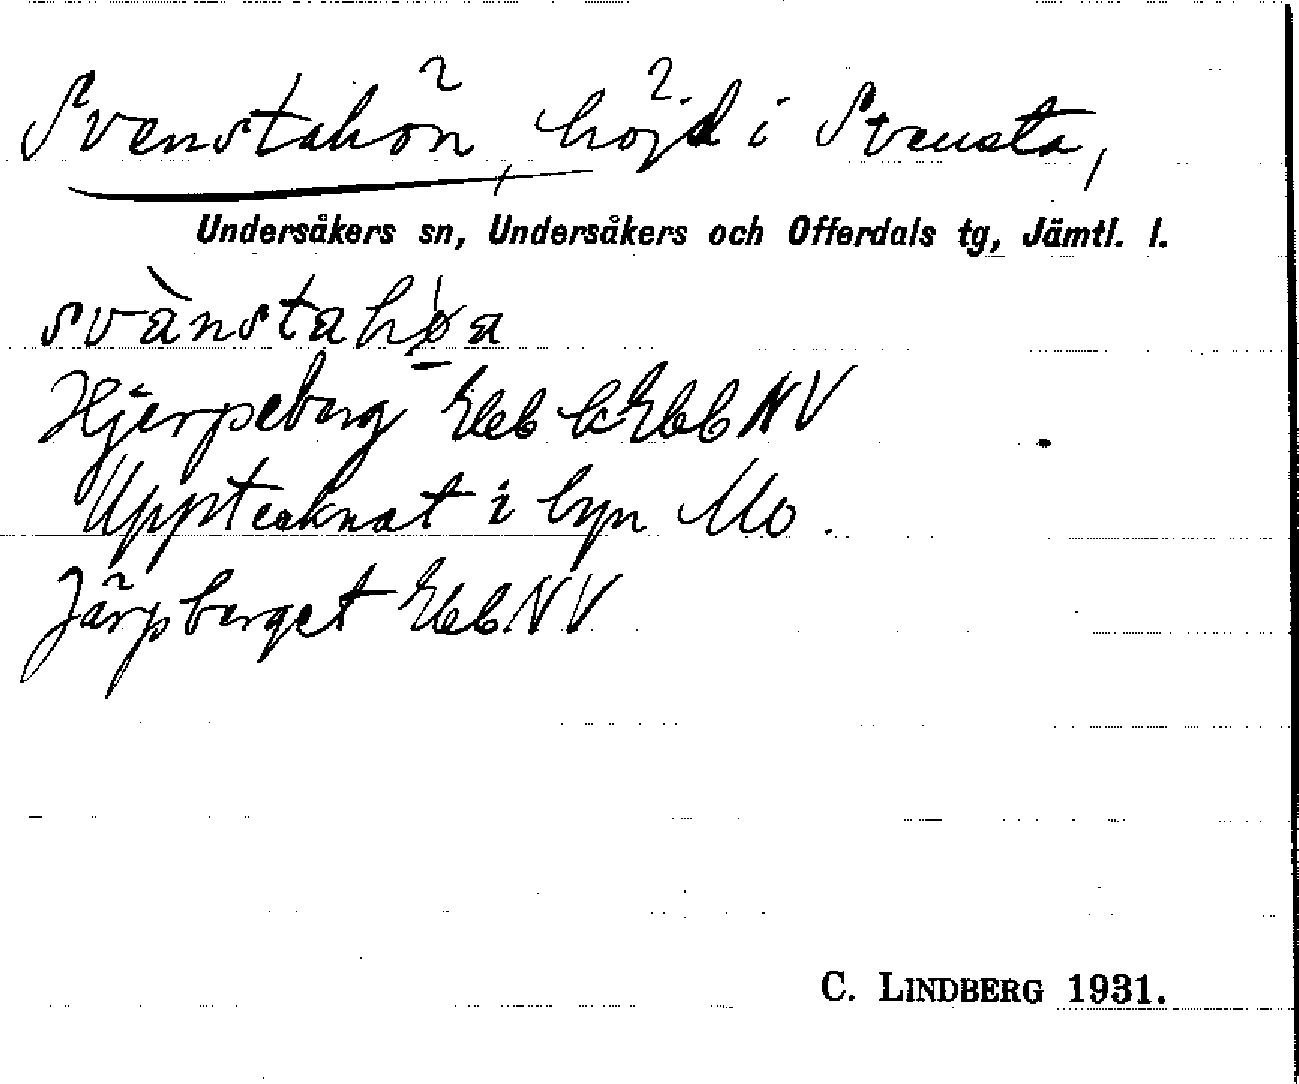 Svenstahön, höjd i Svensta,
Undersåkers sn, Undersåkers och Offerdals tg, Jämtl. l.
svànstahø̀a
Hjerpeberg Ebb k Ebb NV
Upptecknat i byn Mo.
Järpberget Ebb NV
C. LINDBERG 1931.